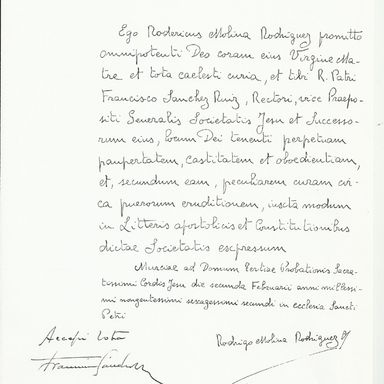 Ego Rodericus Molina Rodriguez promitto
omnipotenti Deo coram eius Virgine Ma-
tre et tota caelesti curia, et tibi R. Patri
Francisco Sanchez Ruiz, Rectori, vice Praepo-
siti Generalis Societatis Jesu et Successo-
rum eius, locum Dei tenenti perpetuam
paupertatem, castitatem et oboedientiam,
et, secundum eam, peculiarem curam cir-
ca puerorum eruditionem, iuxta modum
in Litteris apostolicis et Constitutionibus
dictae Societatis expressum
Murciae ad Domum Tertiae Probationis Sacra-
tissimi Cordis Jesu die secunda Februarii anni millessi-
mi nongentessimi sexagessimi secundi in ecclesia Sancti
Petri
Accepi vota
Rodrigo Molina Rodriguez SJ